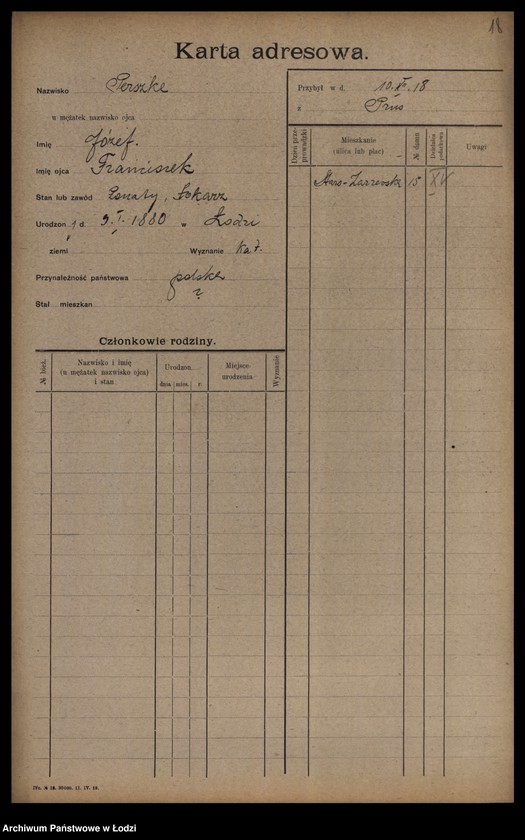 18
Karta adresowa.
Nazwisko Perszke
u mężatek nazwisko ojca
Imię Józef.
Imię ojca Franciszek
Stan lub zawód żonaty, tokarz
Urodzon y d. 9. I. 1880 w Łodzi
ziemi Wyznanie kat.
Przynależność państwowa polska
?
Stał mieszkan
Przybył w d. 10. 18
z Prus
Dzień przeprowadzki
Mieszkanie (ulica lub plac)
№ domu
Dzielnica policyjna
Uwagi
Staro-Zarzewska 15 XV
Członkowie rodziny.
№ bież.
Nazwisko i imię (u mężatek nazwisko ojca) i stan
Urodzon.
dnia mies. r.
Miejsce urodzenia
Wyznanie
Archiwum Państwowe w Łodzi